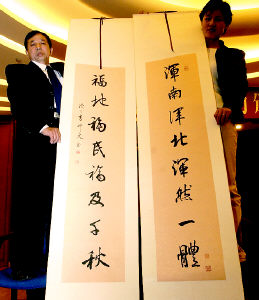 渾南渾北渾然一體
福地福民福及千秋